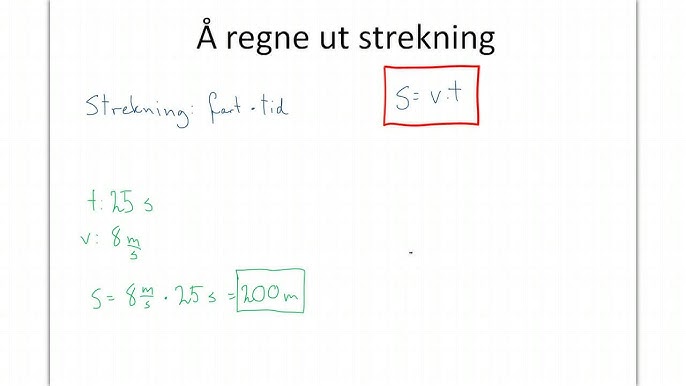 Å regne ut strekning
Strekning: fart · tid
s = v·t
t: 25 s
v: 8 m/s
s = 8 m/s · 25 s = 200 m